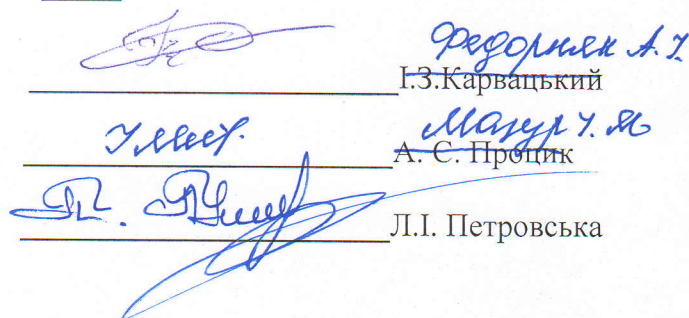 Федорняк А.І.
І.З.Карвацький
Мазур І. М
А. Є. Процик
Л.І. Петровська